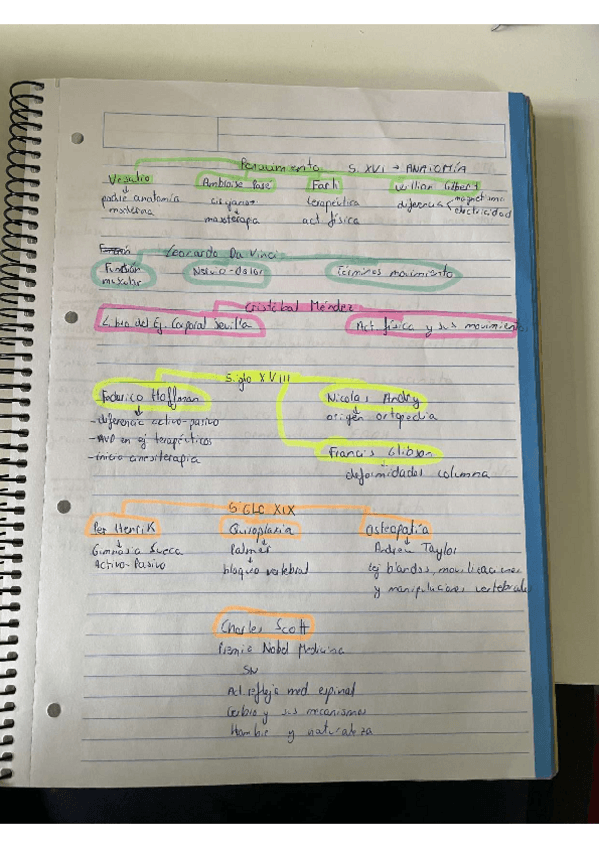 Renacimiento S. XVI → ANATOMÍA
Vesalio Ambroise Paré Fach William Gilbert
padre anatomía cirujano terapéutica diferencia magnetismo
moderna masoterapia act física electricidad
Leonardo Da Vinci
Función Nervio-dolor Términos movimiento
muscular
Cristóbal Méndez
Libro del Ej. Corporal Sevilla Act física y sus movimientos
Siglo XVIII
Federico Hoffman Nicolas Andry
- diferencia activo-pasivo origen ortopedia
- AVD en ej terapéuticos
- inicia cinesiterapia Francis Glibson
deformidades columna
SIGLO XIX
Per Henrik Quiropraxia Osteopatía
Gimnasia Sueca Palmer Andrew Taylor
Activo-Pasivo bloqueo vertebral tej blandos, movilizaciones
y manipulaciones vertebrales
Charles Scott
Premio Nobel Medicina
SN
Act refleja med espinal
Cerbro y sus mecanismos
Hombre y naturaleza